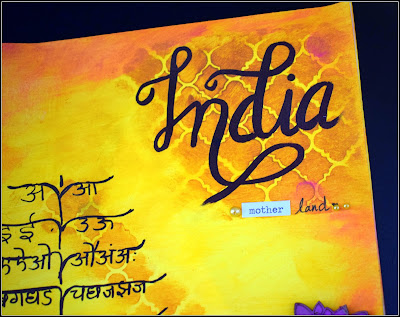 India
mother land
अ आ
इई उऊ
ऐओ औअंअः
गघड चछजझज